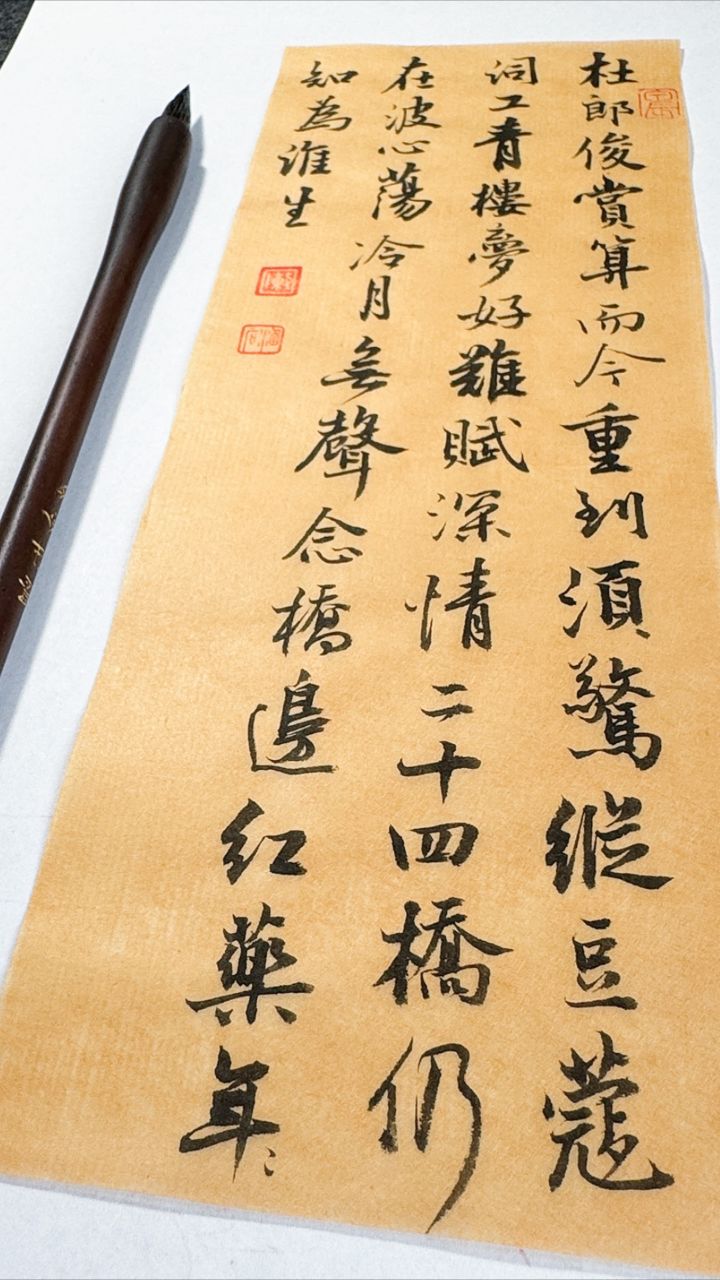 杜郎俊賞算而今重到須驚縱豆蔻
詞工青樓夢好難賦深情二十四橋仍
在波心蕩冷月無聲念橋邊紅藥年〻
知為誰生